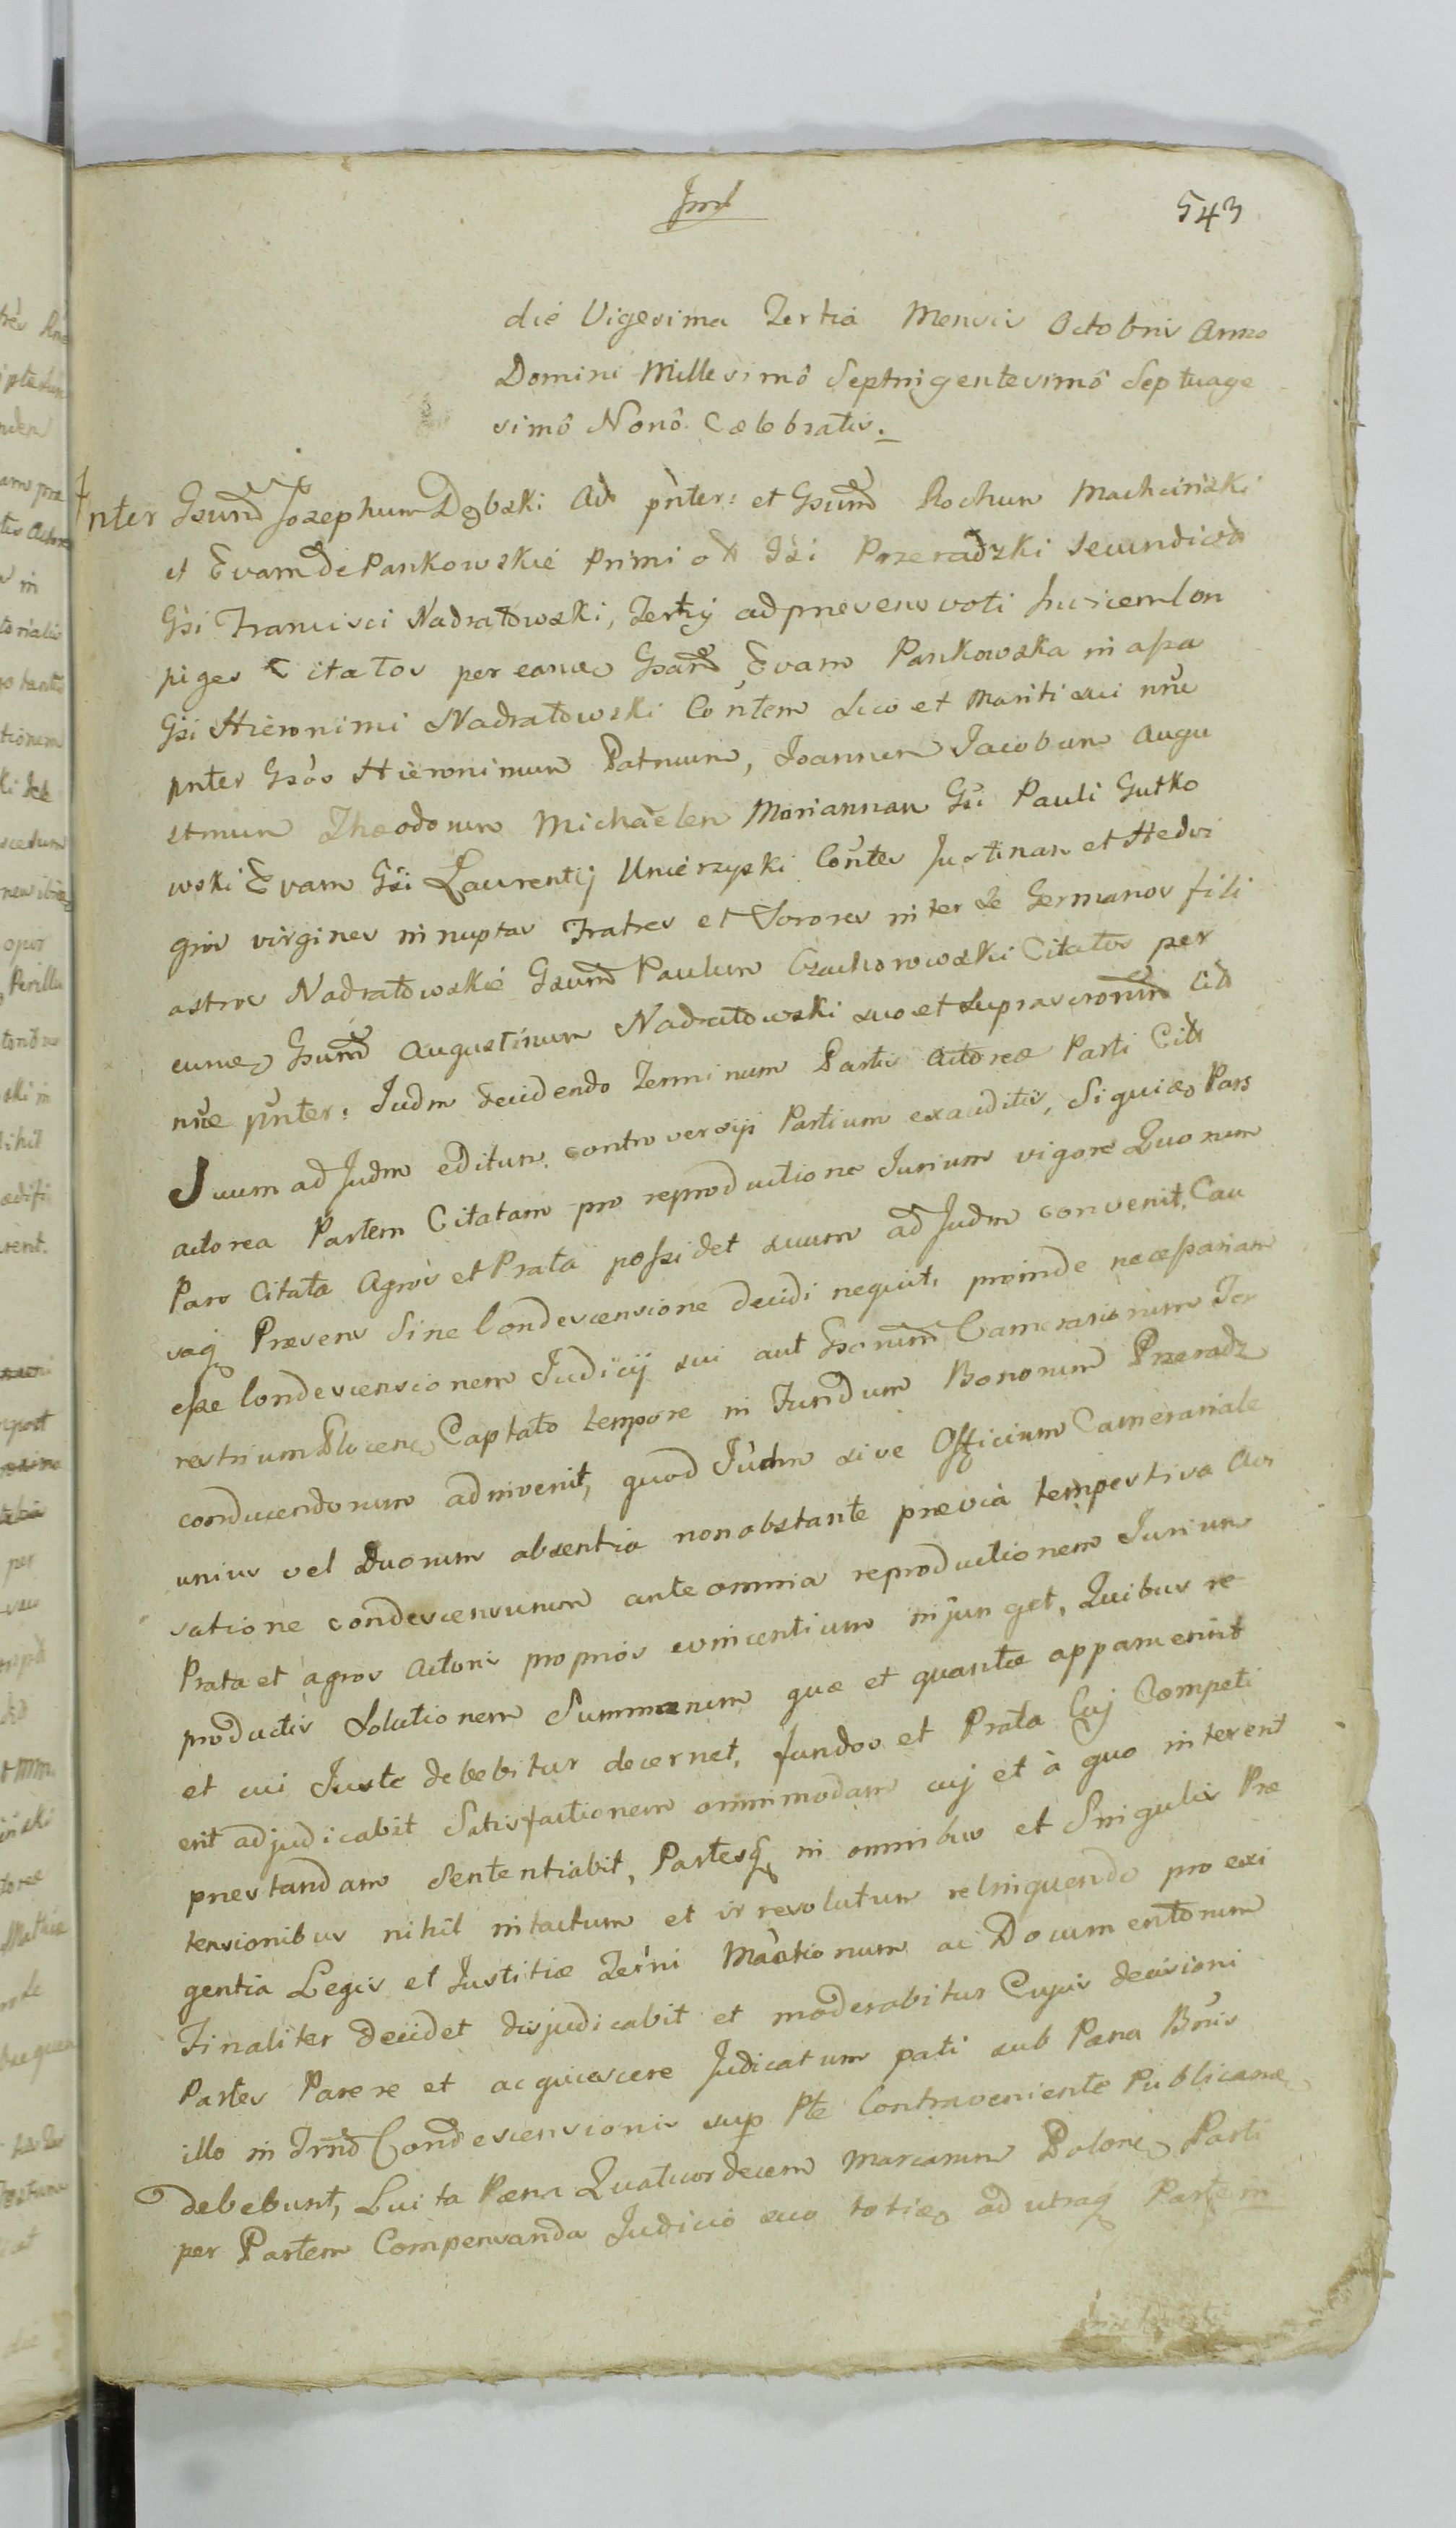 543
die Vigesima Tertia Mensis Octobris Anno
Domini Millesimô Septingentesimô Septuage
simô Nonô Cælebratis.
Inter Gsum Josephum Dębski Act pnter: et Gsum Rochum Machcinski
et Evam de Pankowskie Primi Gsi Przeradzki secundi
Gsi Francisci Nadratowski, Tertij ad præsens voti invicem Con
juges Citatos per eamq Gsam Evam Pankowska in assa
Gsi Hieronimi Nadratowski Contem suo et Mariti sui nne
pnter Gsos Hieronimum Patruum, Joannem Jacobum Augu
stinum Theodorum Michaëlem Mariannam Gsi Pauli Gutko
wski Evam Gsi Laurentij Unierzyski Contes Justinam et Hedvi
gim virgines innuptas Fratres et Sorores inter se Germanos fili
astros Nadratowskie Gsum Paulum Czachorowski Citatos per
eumq Gsum Augustinum Nadratowski suo et suprascrorum Citt
nne pnter: Judm decidendo Terminum Partis Actoreæ Parti Citt
Suum ad Judm editum controversijs Partium exauditis, Siquidẽ Pars
actorea Partem Citatam pro reproductione Jurium vigore Quorum
Pars Citata Agros et Prata possidet suum ad Judm convenit, Cau
saq Præsens Sine Condescensione decidi nequit, proinde necessariam
esse Condescensionem Judicij sui aut Gsorum Camerariorum Ter
restrium Plocen Captato tempore in Fundum Bonorum Przeradz
conducendorum adinvenit, quod Judm sive Officium Camerariale
unius vel Duorum absentia non obstante prævia tempestiva
satione condescensurum ante omnia reproductionem Jurium
Prata et agros Actoris proprios evincentium injunget, Quibus re
productis Solutionem Summarum quæ et quantæ apparuerint
et cui Juste debebitur decernet, fundos et Prata Cuj Competi
erit adjudicabit Satisfactionem omnimodam cuj et à quo intererit
præstandam Sententiabit, Partesq in omnibus et Singulis Præ
tensionibus nihil intactum et irresolutum relinquendo pro exi
gentia Legis et Justitiæ Terni Máationum ac Documentorum
Finaliter decidet disjudicabit et moderabitur Cujus decisioni
Partes Parere et acquiescere Judicatum pati sub Pæna Bnis
illo in Trnô Condescensionis sup Pte Contraveniente Publicanæ
debebunt, Luita Pæna Quatuordecem Marcarum Polonic Parti
per Partem Compensanda Judicio suo toties ad utraq Partem